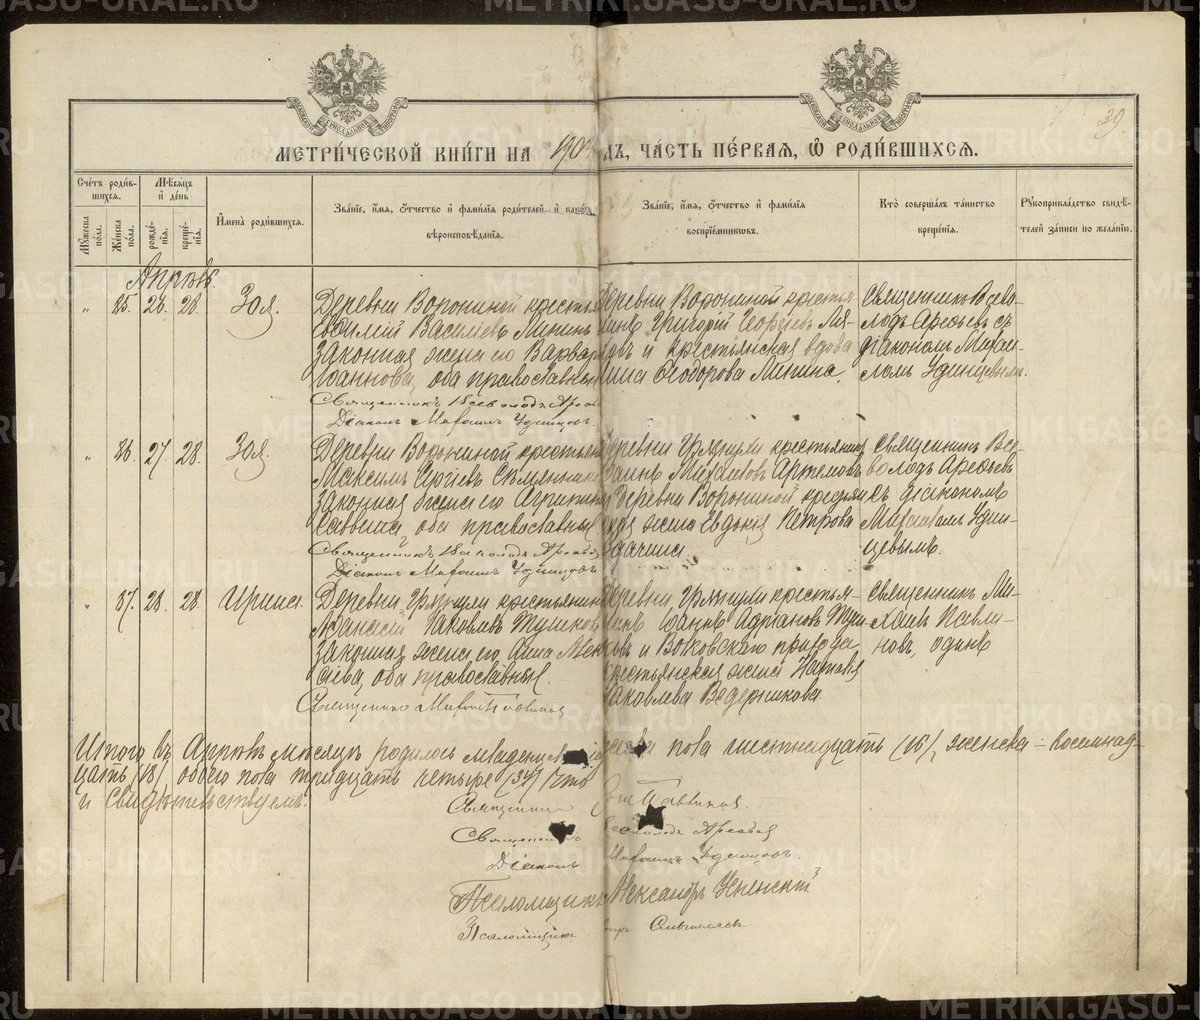 39
МЕТРИ́ЧЕСКОЙ КНИ́ГИ НА 190 ДЪ, ЧА́СТЬ ПЕ́РВАЯ, Ѽ РОДИ́ВШИХСЯ.
Сче́тъ роди́в-
шихся.
Мѣ́сяцъ
и҆ де́нь
Мꙋ́жеска по́ла.
Же́нска по́ла.
рожде́-
нїя.
креще́-
нїя.
И҆мена̀ роди́вшихся.
Зва́нїе, и҆́мя, ѻ҆́тчество и҆ фамилїя роди́телей и҆ како́гѡ
вѣроисповѣ́данїя.
Зва́нїе, и҆́мя, ѻ҆́тчество и҆ фами́лїя
воспрїе́мникѡвъ.
Кто̀ соверша́лъ та́инство
креще́нїя.
Рꙋкоприкла́дство свидѣ́-
телей за́писи по жела́нїю.
Апрѣль.
" 85. 26. 28. Зоя.
Деревни Ворониной крестья
Василий Василіевъ Мининъ
законная жена его Варвара
Іоаннова, оба православные
Священникъ Всеволодъ
Діаконъ Михаилъ Удинцовъ
Деревни Ворониной крестья-
нинъ Григорій Георгіевъ Ми-
и крестьянская вдова
Ѳеодорова Минина.
Священникъ Всево-
лодъ Арефьевъ съ
діакономъ Михаи-
ломъ Удинцевымъ.
" 86. 27. 28. Зоя.
Деревни Ворониной крестьян
Максимъ Сергіевъ
законная жена его Агриппина
Саввина, оба православные
Священникъ Всеволодъ
Діаконъ Михаилъ Удинцовъ
Деревни крестьянинъ
Іоаннъ Михайловъ Артемовъ
Деревни Ворониной крестьян
ская жена Евдокія Петрова
Священникъ Все-
володъ Арефьевъ
съ діакономъ
Михаиломъ Удин-
цевымъ.
" 87. 28. 28. Ирина.
Деревни крестьянинъ
Аѳанасій Іаковлевъ Глушковъ
законная жена его Анна Алек
сіева, оба православные.
Священникъ Михаилъ Павлиновъ
Деревни крестья-
нинъ Іоаннъ Адріановъ
и Волковскаго прихода
крестьянская жена Наталія
Іаковлева Ведерникова
Священникъ Ми-
хаилъ Павли-
новъ, одинъ
Итого въ Апрѣлѣ мѣсяцѣ родилось младенцевъ пола шестнадцать (16), женска - восемнад-
цать (18), обоего пола тридцать четыре (34) что
и свидѣтельствуемъ.
Священникъ Павлиновъ.
Священникъ Всеволодъ
Діаконъ Михаилъ Удинцовъ.
Псаломщикъ Александръ Успенскій
Псаломщикъ
METRIKI.GASO-URAL.RU